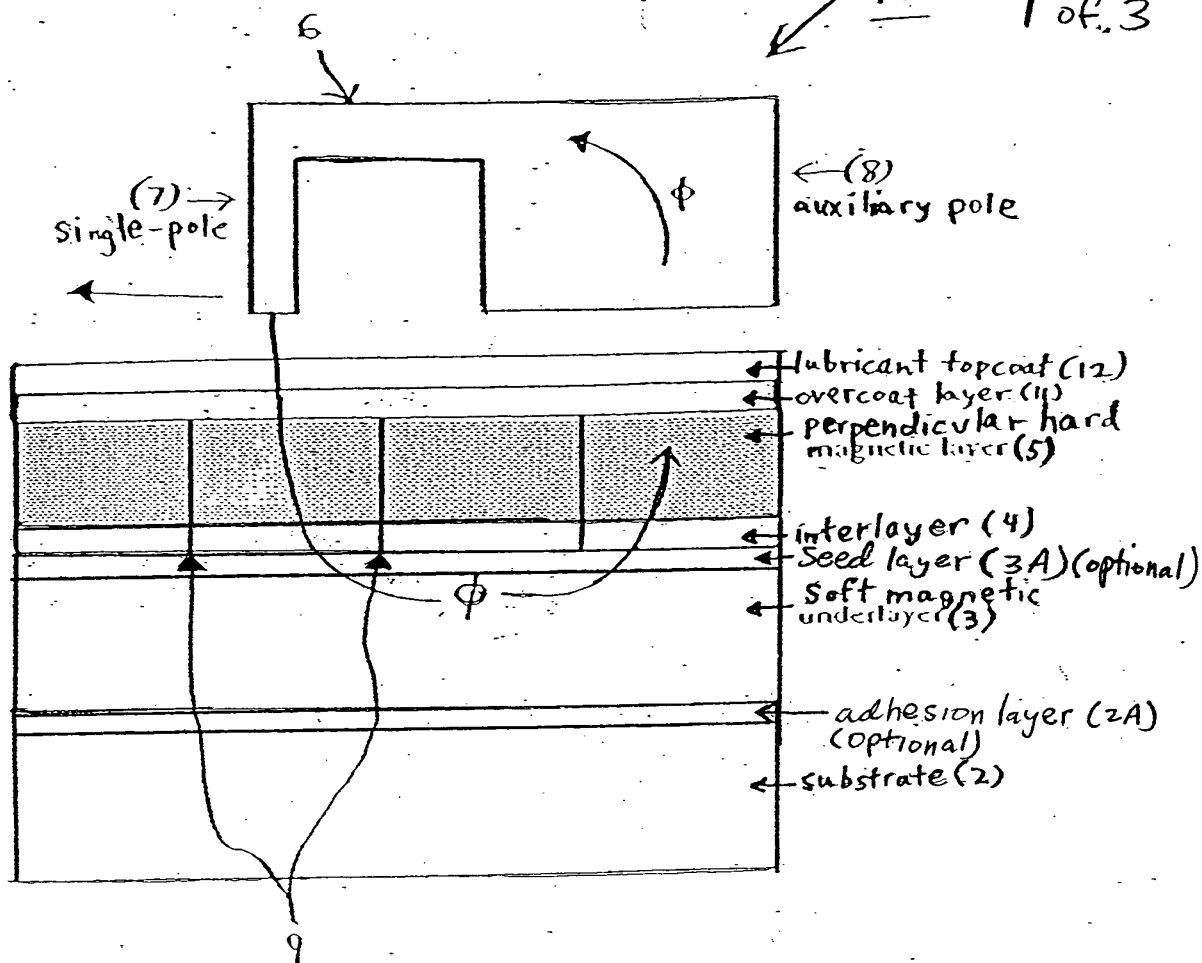 1 of 3
6
(7)
single-pole
ϕ
(8)
auxiliary pole
lubricant topcoat (12)
overcoat layer (11)
perpendicular hard
magnetic layer (5)
interlayer (4)
Seed layer (3A) (optional)
ϕ
Soft magnetic
underlayer (3)
adhesion layer (2A)
(optional)
substrate (2)
9